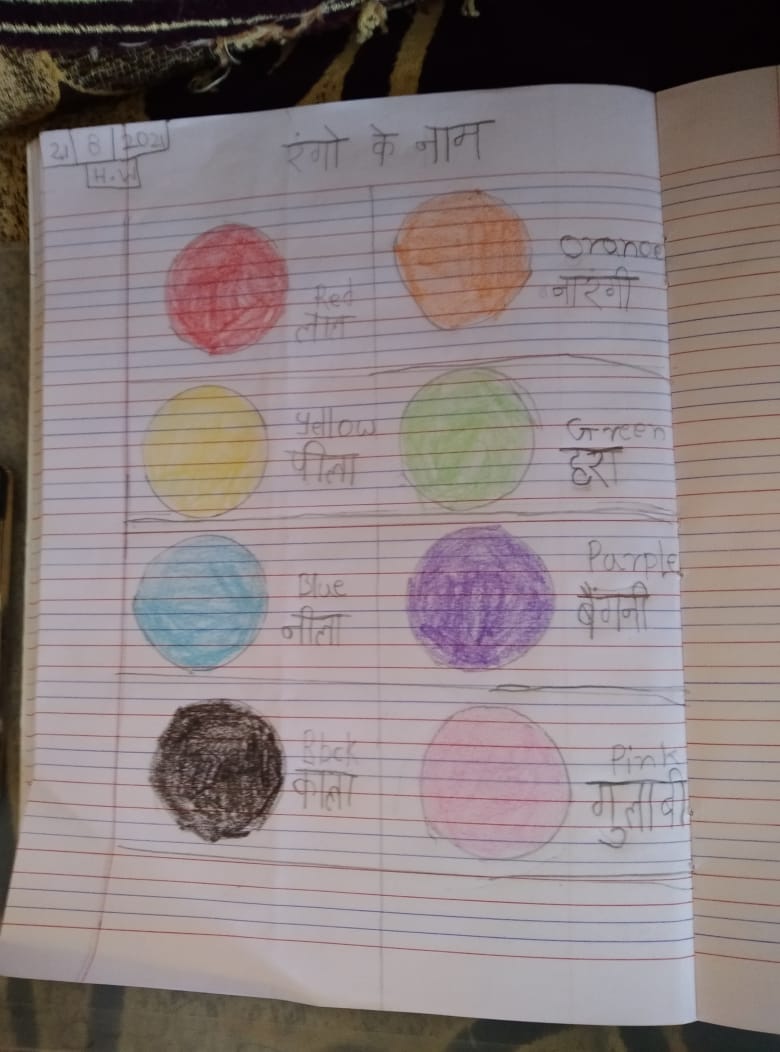 21 8 2021
H.W
रंगो के नाम
Red
लाल
Orange
नारंगी
Yellow
पीला
Green
हरा
Blue
नीला
Purple
बैंगनी
Black
काला
Pink
गुलाबी